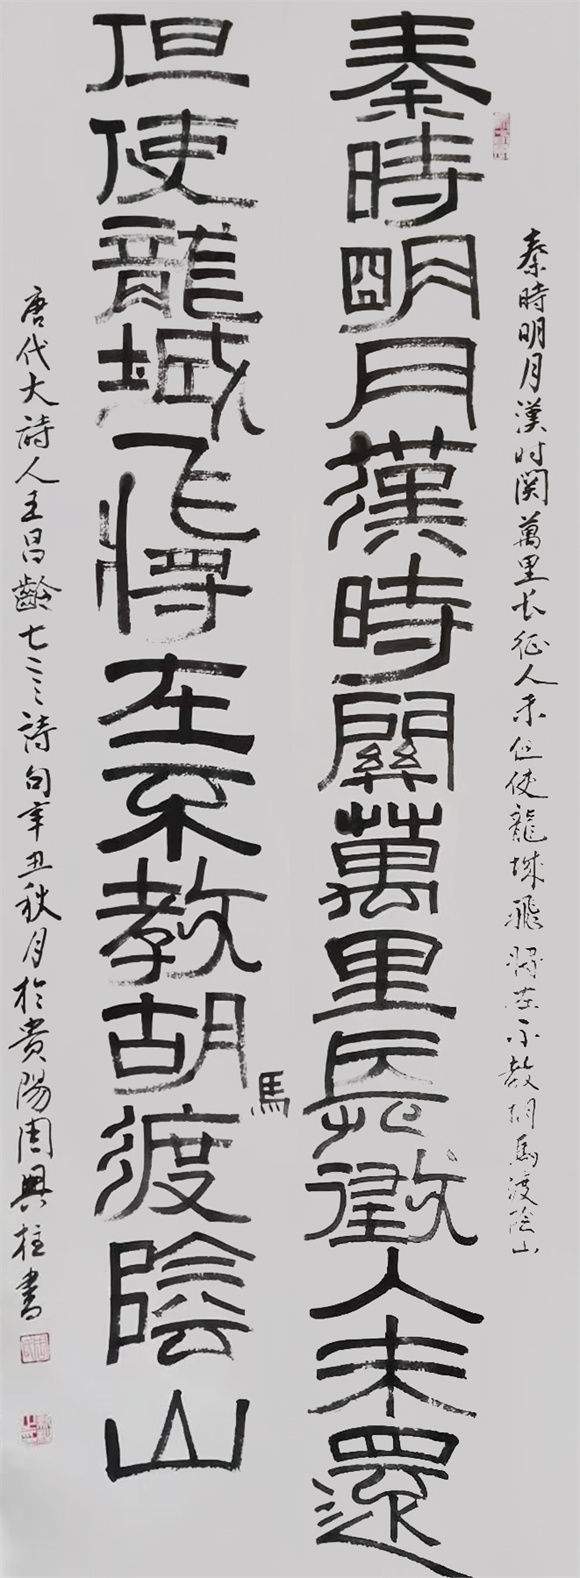 秦時明月漢时関萬里长征人未但使龍城飛将在不教胡馬渡陰山
秦時明月漢時關萬里長徵人未還
但使龍城飛將在不教胡馬渡陰山
唐代大詩人王昌齡七言詩句辛丑秋月於貴陽周興柱書